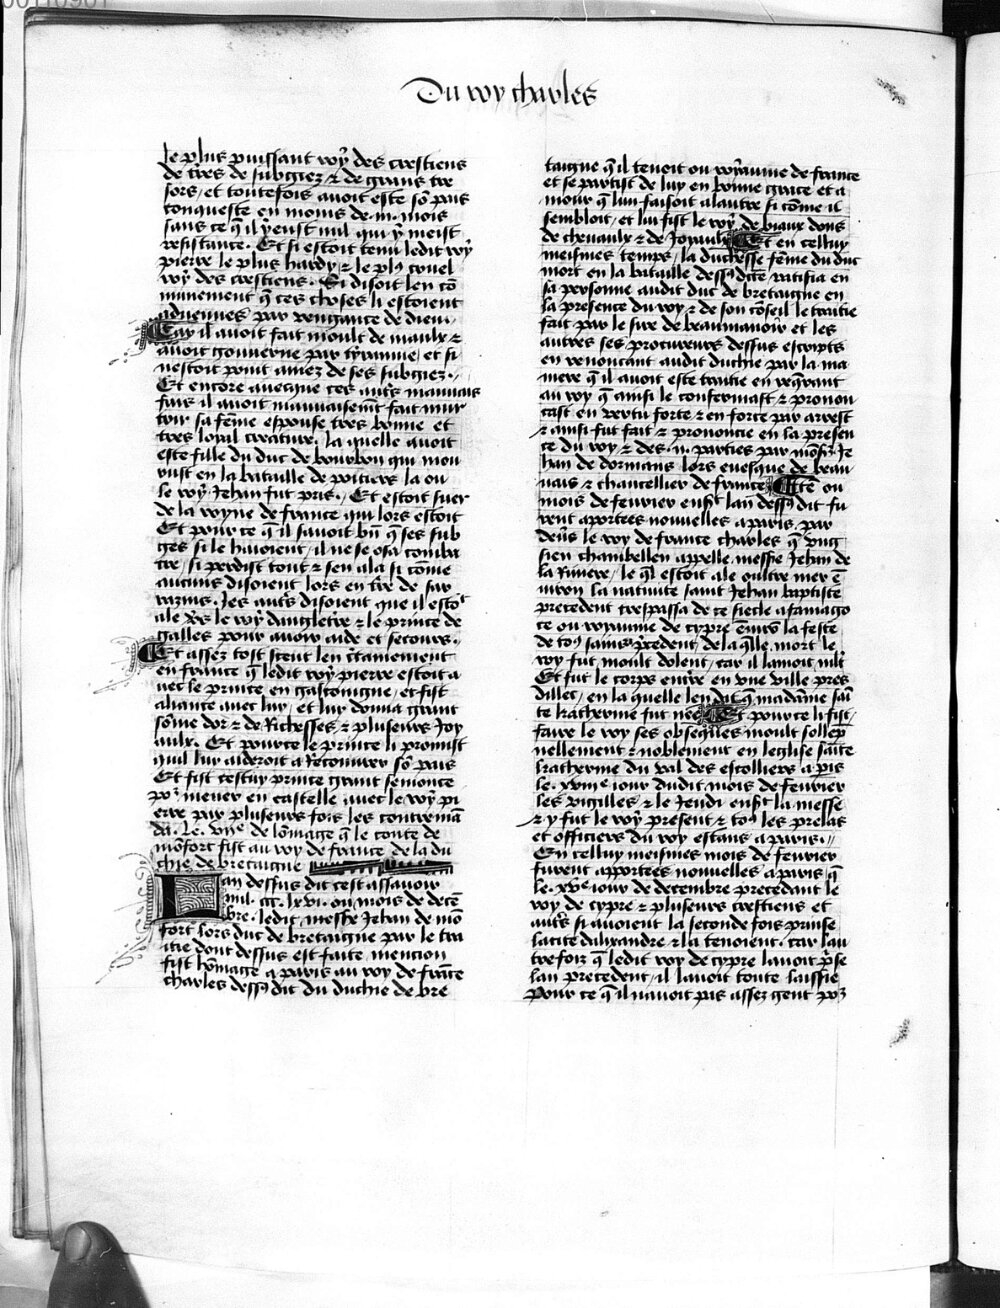 Du roy charles
le plus puissant roy des crestiens
de tres de subgiez ⁊ de grans tre
sors / et toutefois auoit este sō pais
conqueste en moins de .iii. mois
sans ce q̄ il y eust nul qui y meist
resistance. Et si estoit tenu ledit roy
pierre le plus hardy ⁊ le pl9 cruel
roy des crestiens. Si disoit len cō
munement q̄ ces choses li estoient
aduenues par vengance de dieu.
Car il auoit fait moult de maulx ⁊
auoit gouuerne par tyrannie / et si
nestoit point amez de ses subgiez.
Et encore auecque ces autr̄s mauuais
fais il auoit mauuaisemēt fait mur
trir sa fēme espouse tres bonne et
tres loyal creature. la quelle auoit
este fille du duc de bourbon qui mou
rust en la bataille de poitiers la ou
le roy Jehan fut pris. Et estoit suer
de la royne de france qui lors estoit
Et pour ce q̄ il sauoit bn̄ q̄ ses sub
ges si le hauoient / il ne se osa comba
tre / si perdist tout ⁊ sen ala si cōme
aucuns disoient lors en tr̄e de sar
razins. Les autr̄s disoient que il estoit
ale vers le roy dangletr̄e ⁊ le prince de
galles pour auoir aide et secours.
Et assez tost sceut len c̄tainement
en france q̄ ledit roy pierre estoit a
uec le prince en gascongne / et fist
aliance auec luy / et luy donna grant
sōme dor ⁊ de Richesses ⁊ plusieurs Joy
aulx. Et pource le prince li promist
quil luy aideroit a Recouurer sō pais
Et fist cestuy prince grant semonce
po2 mener en castelle auec le roy pi
erre par plusieurs fois les contremā
da. Le .viie de lōmage q̄ le conte de
mōfort fist au roy de france de la du
chie de bretaigne
Lan dessus dit cest assauoir
mil. ccc. lxvi. ou mois de decē
bre. ledit messr̄e Jehan de mō
fort lors duc de bretaigne par le trai
ctie dont dessus est faite mencion
fist hōmage a paris au roy de frāce
charles dess9 dit du duchie de bre
taigne q̄ il tenoit ou royaume de france
et se partist de luy en bonne grace et a
mour q̄ lun faisoit a lautre si cōme il
sembloit / et lui fist le roy de biaux dons
de cheuaulx ⁊ de Joyaulx Et en celluy
meismes temps / la duchesse fēme du duc
mort en la bataille dess9 dicte ratifia en
sa personne audit duc de bretaigne en
la presence du roy ⁊ de son cōseil le traitie
fait par le sire de beaumanoir et les
autres ses procureurs dessus escripts
en renoncant audit duchie par la ma
niere q̄ il auoit este traitie en reqrant
au roy q̄ ainsi le confermast ⁊ pronon
cast en vertu forte ⁊ en force par arrest
⁊ ainsi fut fait ⁊ prononcie en la presen
ce du roy ⁊ des .ii. parties par mōsr̄ Je
han de dormans lors euesque de beau
uais ⁊ chancellier de france Itē ou
mois de feurier enst̄ lan dess9 dit fu
rent aportees nouuelles a paris par
deuers le roy de france charles q̄ vng
sien chambellen appelle messr̄e Jehan de
la Riuiere / le q̄l estoit ale oultre mer ē
uiron la natiuite saint Jehan baptiste
precedent trespassa de ce siecle a famago
ce ou royaume de cypre ēuirō la feste
de to9 sains p̄cedent / de laq̄lle mort le
roy fut moult dolent / car il lamoit mlt̄
Et fut le corps entre en vne ville pres
dillec / en la quelle len dit q̄ madāme sai
te katherine fut nee Et pource li fist
faire le roy ses obseques moult sollep
nellement ⁊ noblement en leglise saīte
katherine du val des escolliers a p̄is
le .xviiie iour dudit mois de feurier
les vigilles ⁊ le Jeudi enst̄ la messe
⁊ y fut le roy present ⁊ to9 les prelas
et officiers du roy estans a paris.
En celluy meismes mois de feurier
furent apportees nouuelles a paris q̄
le .xve iour de decembre precedant le
roy de cypre ⁊ plusieurs crestiens et
autr̄s si auoient la seconde fois prinse
la cite dalixandre ⁊ la tenoient. car lau
tre fois q̄ ledit roy de cypre lauoit p̄se
lan precedent / il lauoit toute laissie
Pour ce q̄ il nauoit pas assez gent po2